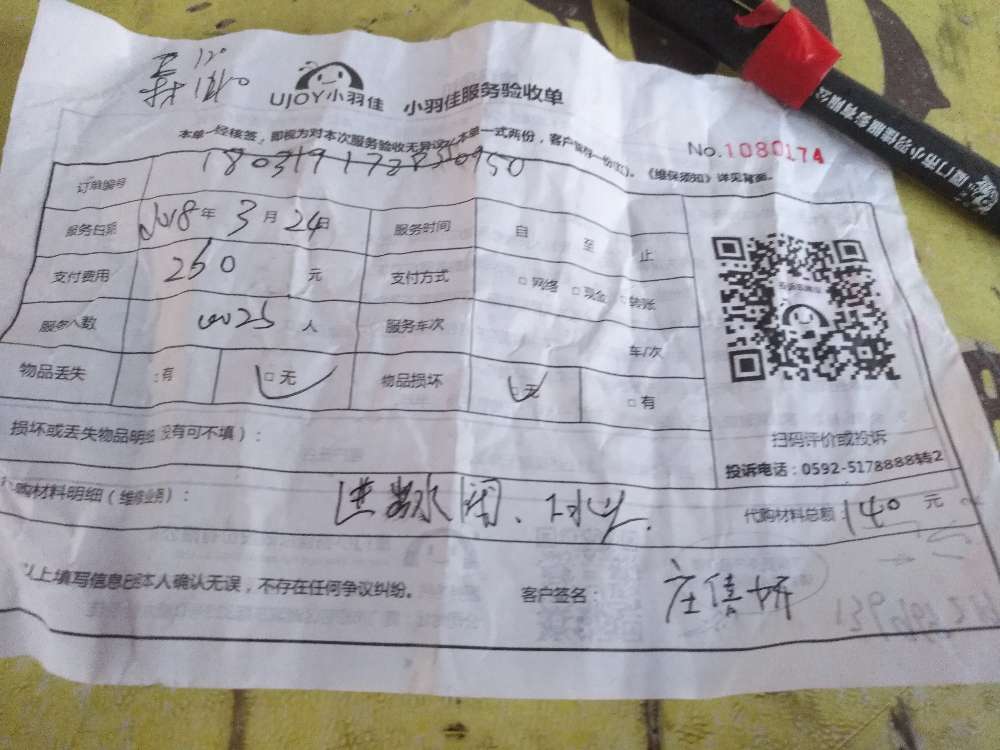 UJOY小羽佳 小羽佳服务验收单
本单一经核签，即视为对本次服务验收无异议，本单一式两份，客户 一份 。《维保须知》详见背面。
No.1080174
订单编号
服务日期 2018年 3月 24日 服务时间 自 至 止
支付费用 260 元 支付方式 □网络 □现金 □转账
服务人数 人 服务车次 车/次
物品丢失 □有 □无 物品损坏 无 □有
损坏或丢失物品明细（没有可不填）：
扫码评价或投诉
投诉电话：0592-5178888转2
购材料明细（维修业务）： 进 水阀、 代购材料总额 140 元
以上填写信息已经本人确认无误，不存在任何争议纠纷。 客户签名： 庄 妍